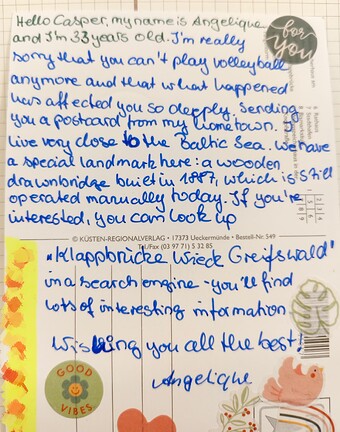 Hello Casper, my name is Angelique
and I'm 33 years old. I'm really
sorry that you can't play volleyball
anymore and that what happened
has affected you so deeply. Sending
you a postcard from my hometown. I
live very close to the Baltic Sea. We have
a special landmark here: a wooden
drawnbridge built in 1887, which is still
operated manually today. If you're
interested, you can look up
for
you
© KÜSTEN-REGIONALVERLAG • 17373 Ueckermünde • Bestell-Nr. 549
Tel./Fax (03 97 71) 5 32 85
„Klappbrücke Wieck Greifswald"
in a search engine - you'll find
lots of interesting information
Wishing you all the best!
Angelique
GOOD
VIBES